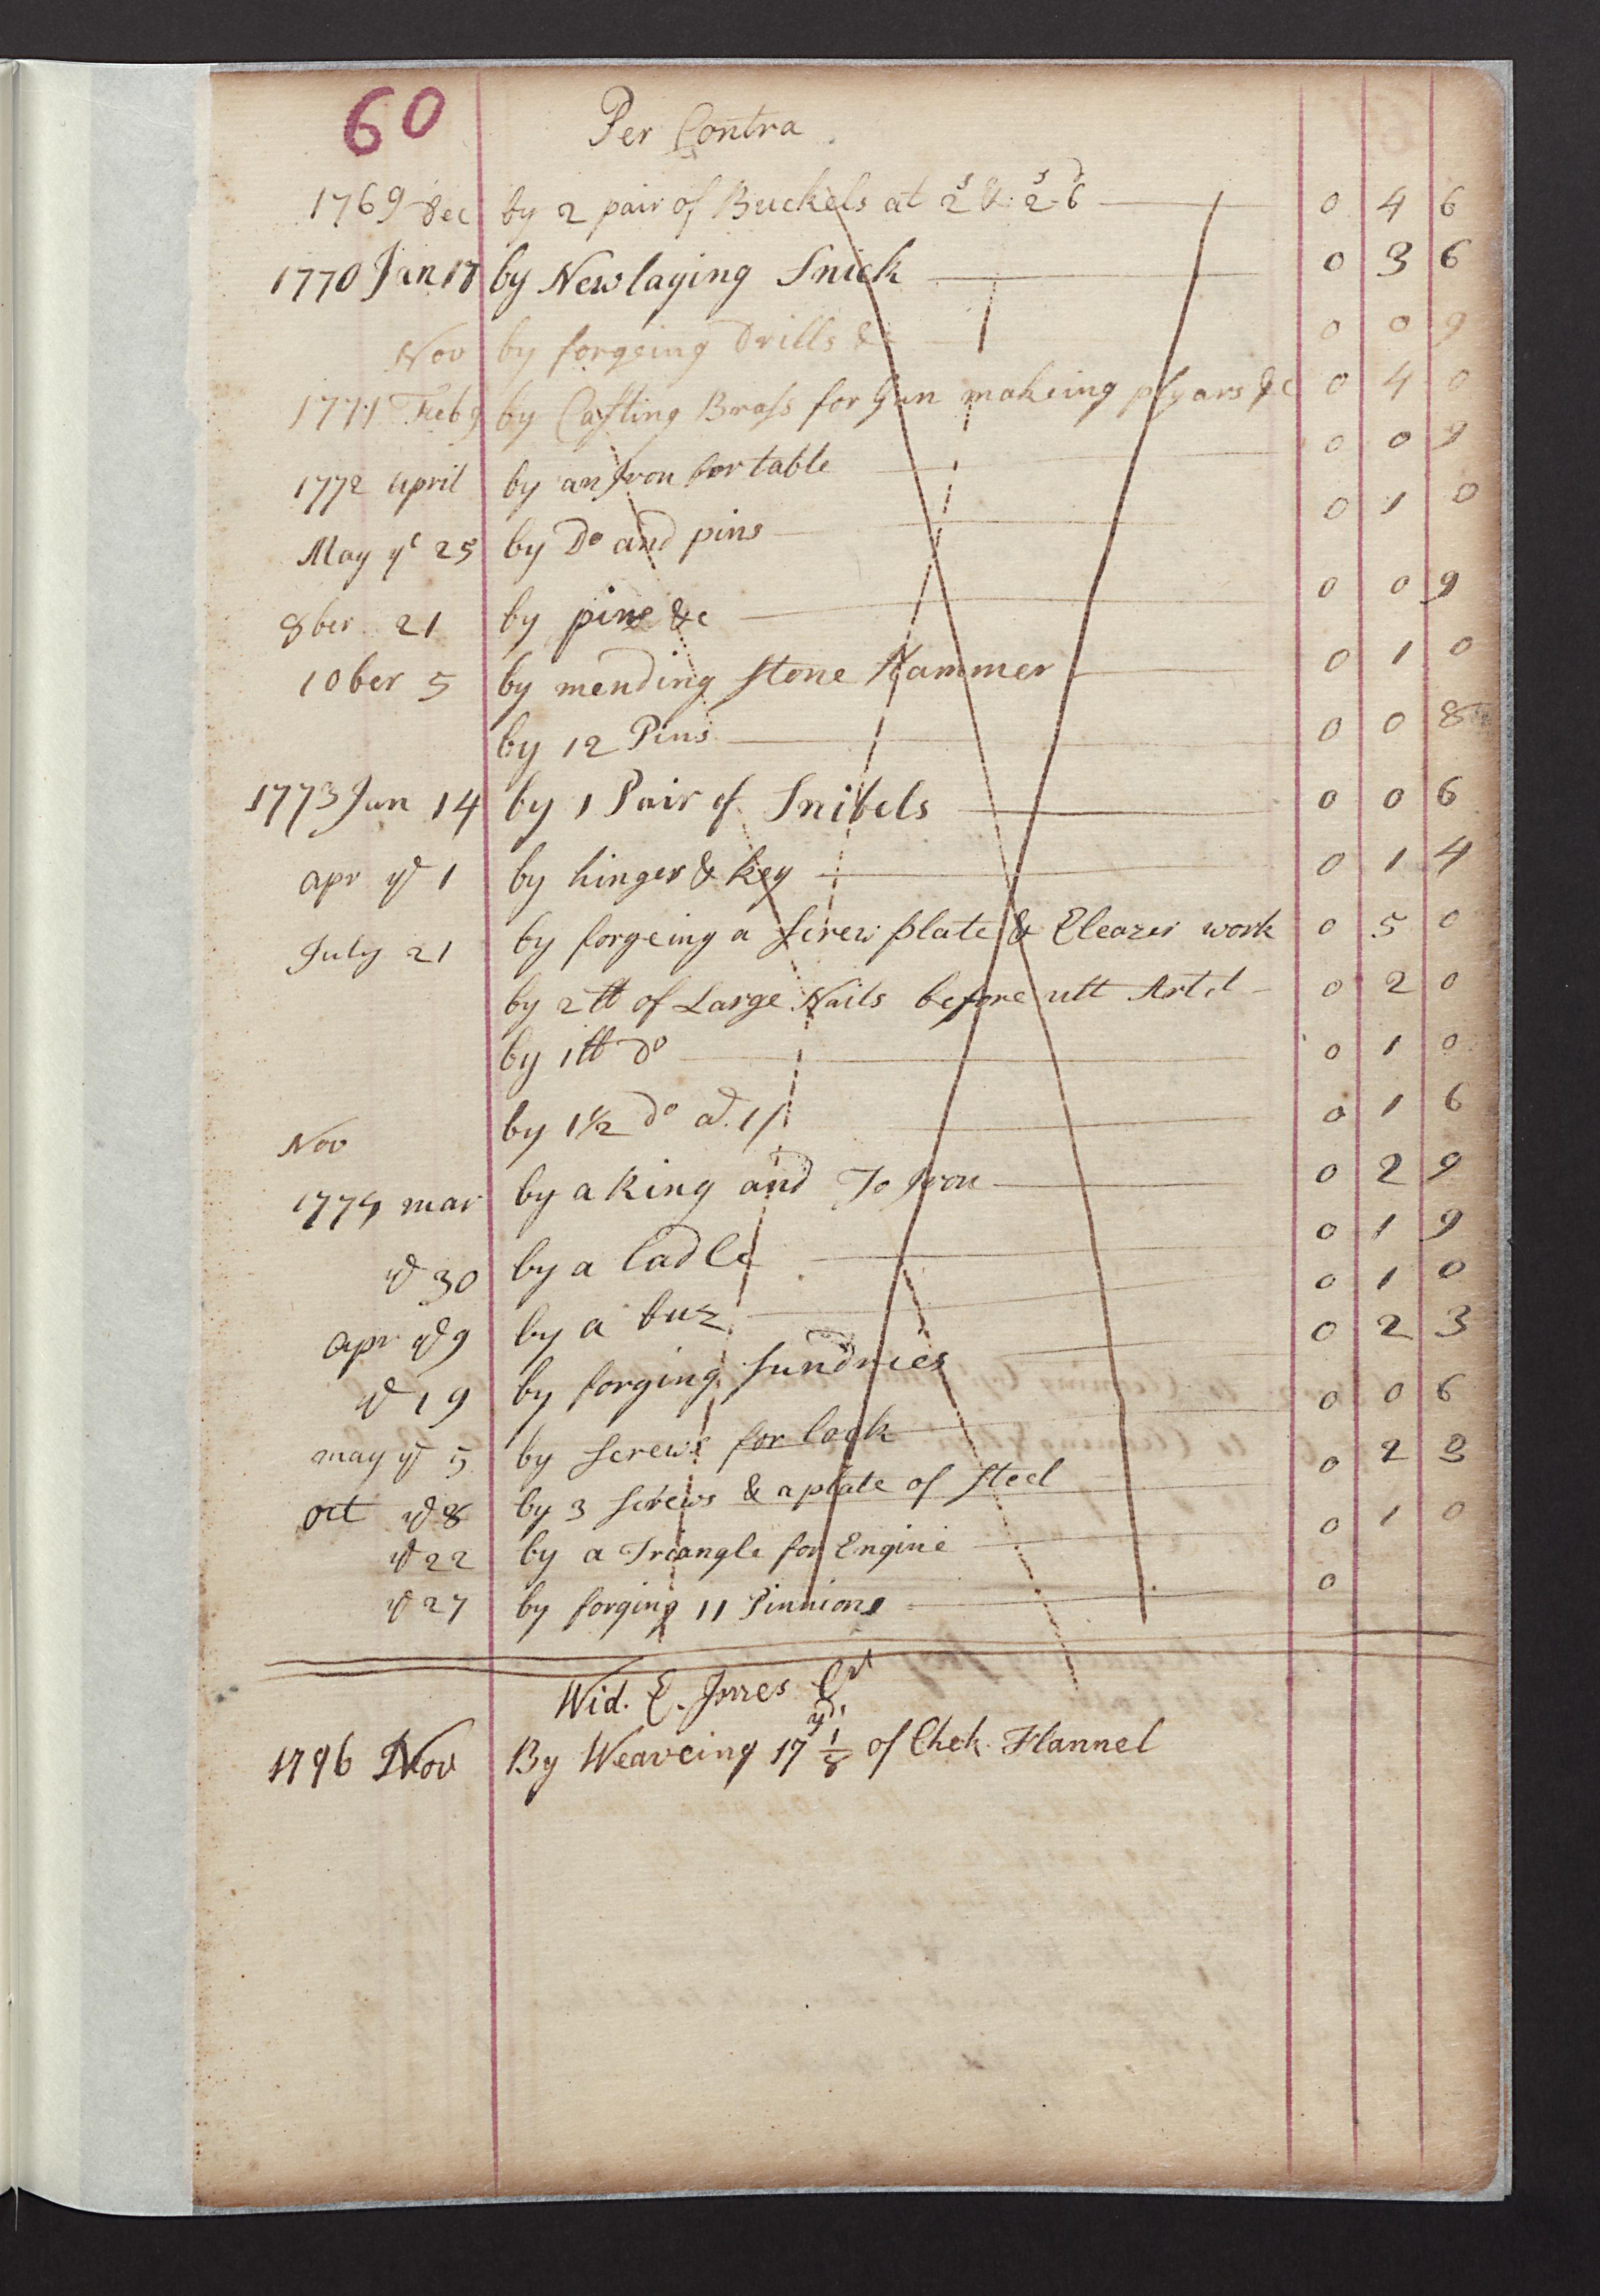 60 Per Contra
1769 Dec by 2 pair of Buckels at 2s & 2s-6d 0 4 6
1770 Jan 17 by New laying Snick 0 3 6
Nov by forgeing Drills &c 0 0 9
1771 Feb 9 by Casting Brass for Gun makeing plyars &c 0 4 0
1772 april by an Iron for table 0 0 9
May ye 25 by Do and pins 0 1 0
8ber 21 by pins &c 0 0 9
10ber 5 by mending stone Hammer 0 1 0
by 12 Pins 0 0 8
1773 Jan 14 by 1 Pair of Snibels 0 0 6
apr ye 1 by hinger & key 0 1 4
July 21 by forgeing a screw plate & Eleazer work 0 5 0
by 2 tt of Large Nails before utt Artd 0 2 0
by 1 tt do 0 1 0
Nov by 1½ do at 1/ 0 1 6
1774 mar by a Ring and To Iron 0 2 9
ye 30 by a ladle 0 1 9
apr ye 9 by a buz 0 1 0
ye 19 by forging sundries 0 2 3
may ye 5 by screws for lock 0 0 6
oct ye 8 by 3 screws & a plate of steel 0 2 3
ye 22 by a Triangle for Engine 0 1 0
ye 27 by forging 11 Pinnions 0
Wid. E. Jnres Cr
1796 Nov By Weaveing 17 1/8 yds of Chek Flannel